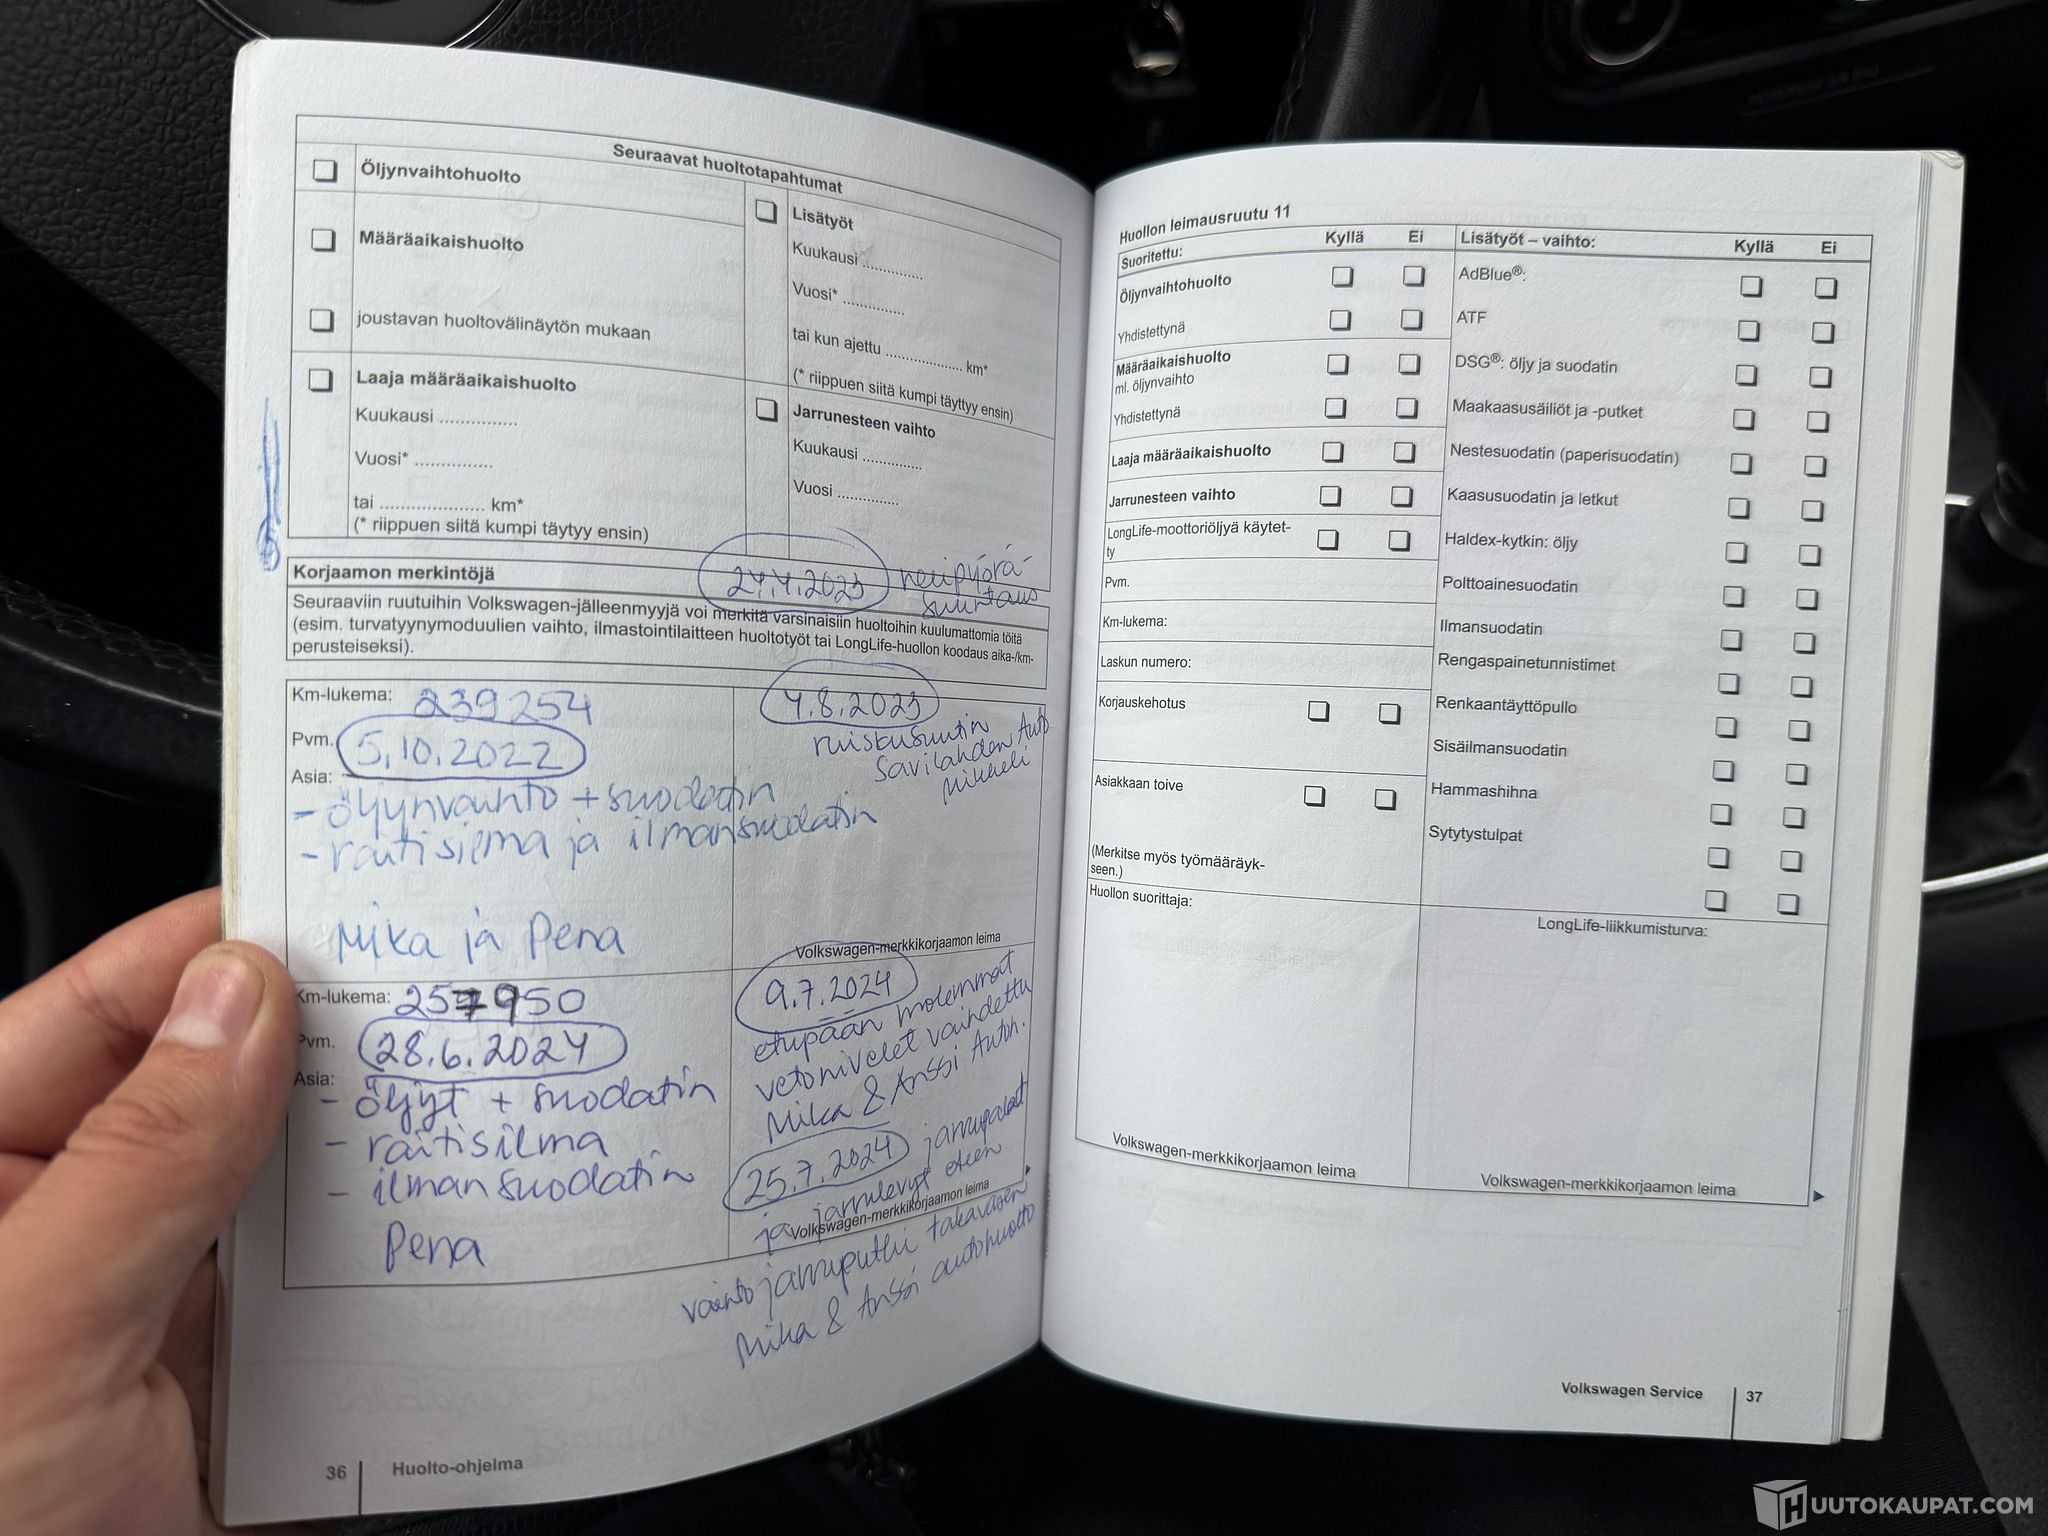 Seuraavat huoltotapahtumat
Öljynvaihtohuolto
Määräaikaishuolto
joustavan huoltovälinäytön mukaan
Laaja määräaikaishuolto
Kuukausi ...............
Vuosi* ...............
tai .................... km*
(* riippuen siitä kumpi täytyy ensin)
Lisätyöt
Kuukausi ...............
Vuosi* ...............
tai kun ajettu .................... km*
(* riippuen siitä kumpi täyttyy ensin)
Jarrunesteen vaihto
Kuukausi ...............
Vuosi ...............
Korjaamon merkintöjä
24.4.2023 nelipyörä-
suuntaus
Seuraaviin ruutuihin Volkswagen-jälleenmyyjä voi merkitä varsinaisiin huoltoihin kuulumattomia töitä
(esim. turvatyynymoduulien vaihto, ilmastointilaitteen huoltotyöt tai LongLife-huollon koodaus aika-/km-
perusteiseksi).
Km-lukema: 239254
Pvm. 5.10.2022
Asia:
- öljynvaihto + suodatin
- raitisilma ja ilmansuodatin
Mika ja Pena
4.8.2023
ruiskusuutin
Savilahden Auto
Mikkeli
Volkswagen-merkkikorjaamon leima
Km-lukema: 257950
Pvm. 28.6.2024
Asia:
- öljyt + suodatin
- raitisilma
- ilmansuodatin
Pena
9.7.2024
etupään molemmat
vetonivelet vaihdettu
Mika & Anssi Autoh.
25.7.2024 jarrupalat
ja jarrulevyt eteen
Volkswagen-merkkikorjaamon leima
vaihto jarruputki takavasen
Mika & Anssi autohuolto
36 Huolto-ohjelma
Huollon leimausruutu 11
Suoritettu: Kyllä Ei
Öljynvaihtohuolto
Yhdistettynä
Määräaikaishuolto
ml. öljynvaihto
Yhdistettynä
Laaja määräaikaishuolto
Jarrunesteen vaihto
LongLife-moottoriöljyä käytet-
ty
Pvm.
Km-lukema:
Laskun numero:
Korjauskehotus
Asiakkaan toive
(Merkitse myös työmääräyk-
seen.)
Huollon suorittaja:
Volkswagen-merkkikorjaamon leima
Lisätyöt – vaihto: Kyllä Ei
AdBlue®:
ATF
DSG®: öljy ja suodatin
Maakaasusäiliöt ja -putket
Nestesuodatin (paperisuodatin)
Kaasusuodatin ja letkut
Haldex-kytkin: öljy
Polttoainesuodatin
Ilmansuodatin
Rengaspainetunnistimet
Renkaantäyttöpullo
Sisäilmansuodatin
Hammashihna
Sytytystulpat
LongLife-liikkumisturva:
Volkswagen-merkkikorjaamon leima
Volkswagen Service 37
HUUTOKAUPAT.COM